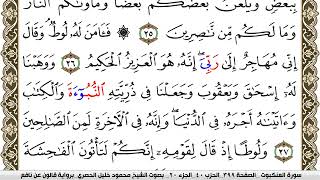 بِبَعْضٍ وَيَلْعَنُ بَعْضُكُم بَعْضًا وَمَأْوَىٰكُمُ النَّارُ
وَمَا لَكُم مِّن نَّٰصِرِينَ ٢٥ فَـَٔامَنَ لَهُۥ لُوطٌ وَقَالَ
إِنِّي مُهَاجِرٌ إِلَىٰ رَبِّيَ إِنَّهُۥ هُوَ ٱلْعَزِيزُ ٱلْحَكِيمُ ٢٦ وَوَهَبْنَا
لَهُۥ إِسْحَٰقَ وَيَعْقُوبَ وَجَعَلْنَا فِي ذُرِّيَّتِهِ ٱلنُّبُوٓءَةَ وَٱلْكِتَٰبَ
وَءَاتَيْنَٰهُ أَجْرَهُۥ فِي ٱلدُّنْيَا وَإِنَّهُۥ فِي ٱلْأَخِرَةِ لَمِنَ ٱلصَّٰلِحِينَ
٢٧ وَلُوطًا إِذْ قَالَ لِقَوْمِهِۦ إِنَّكُمْ لَتَأْتُونَ ٱلْفَٰحِشَةَ
سورة العنكبوت الصفحة ٣٩٩ الحزب ٤٠ الجزء ٢٠ بصوت الشيخ محمود خليل الحصري برواية قالون عن نافع